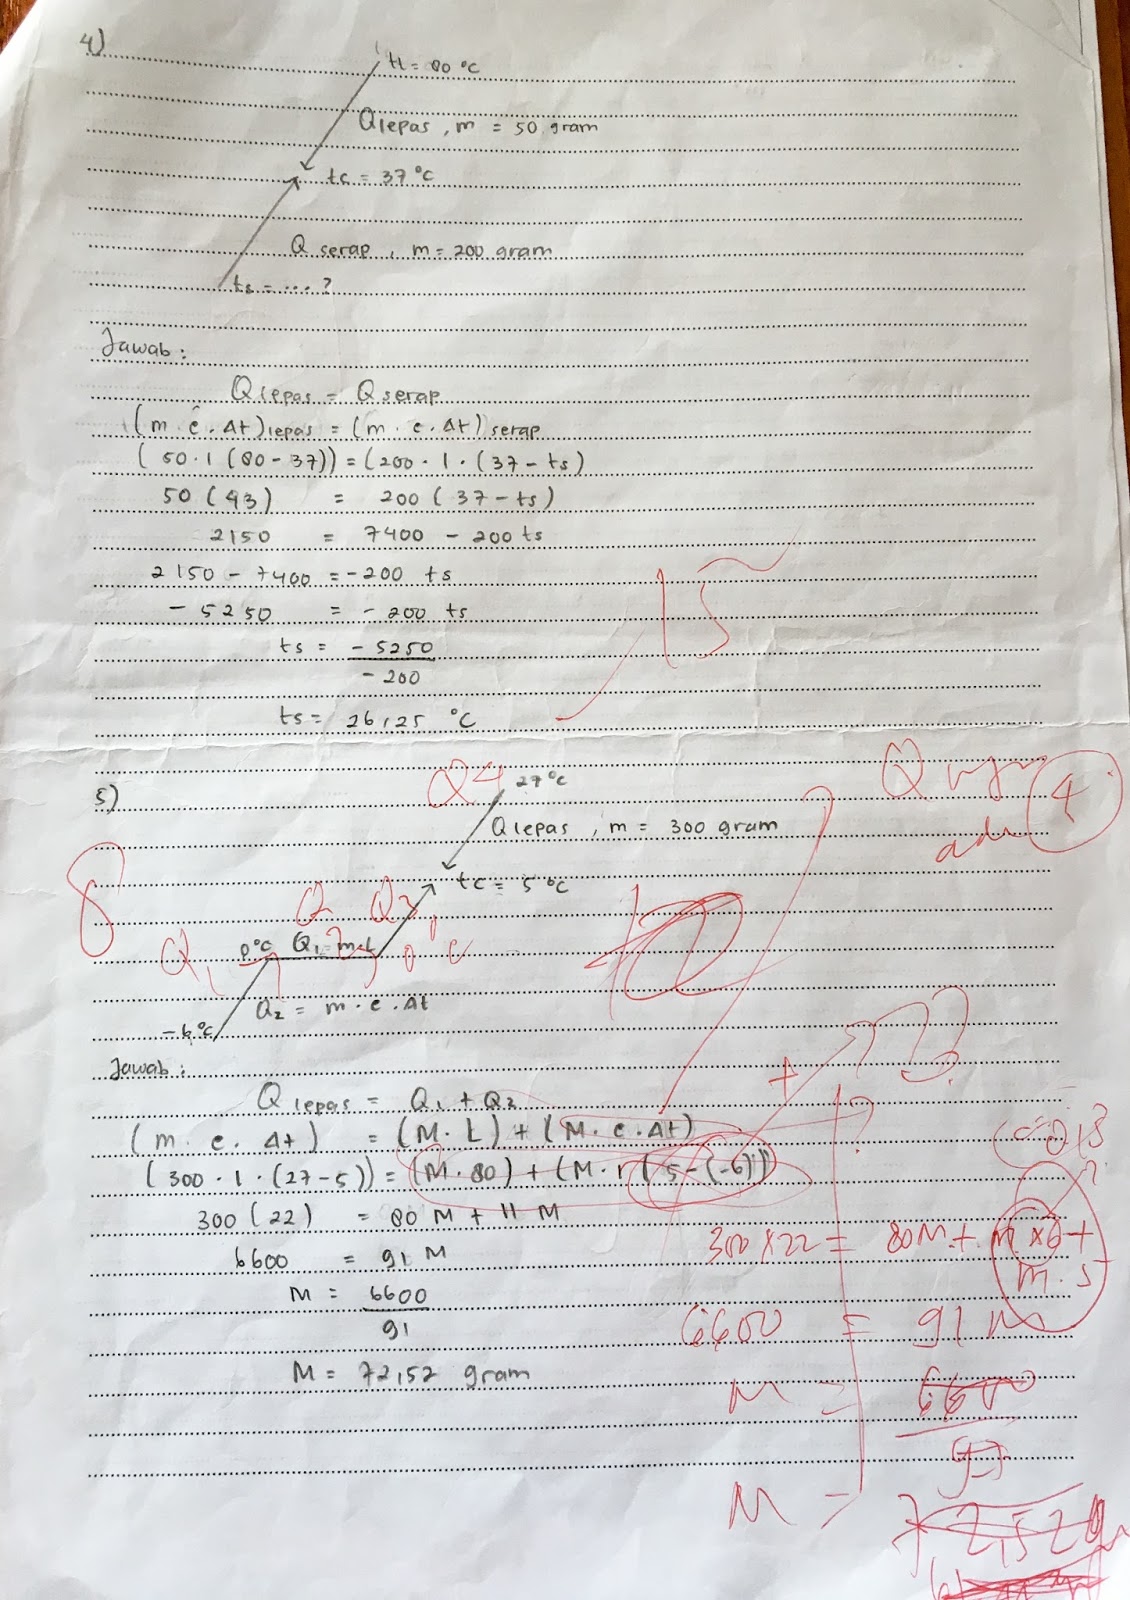 4)
t1 = 80 °C
Qlepas, m = 50 gram
tc = 37 °C
Q serap, m = 200 gram
ts = .... ?
Jawab :
Qlepas = Qserap
(m . c . Δt)lepas = (m . c . Δt) serap
(50 . 1 (80 - 37)) = (200 . 1 . (37 - ts)
50 (43) = 200 (37 - ts)
2150 = 7400 - 200 ts
2150 - 7400 = -200 ts
- 5250 = - 200 ts
ts = - 5250
- 200
15
ts = 26,25 °C
5)
Q4 27 °C
Q
4
Qlepas, m = 300 gram
tc = 5 °C
8
Q Q3
Q1 0 °C Q1 = m.L 0 °C
10
Q2 = m . c . Δt
-6 °C
Jawab :
Qlepas = Q1 + Q2
(m . c . Δt) = (M . L) + (M . c . Δt)
+
?
(300 . 1 . (27 - 5)) = (M . 80) + (M . 1 (5 - (-6)))
c = 0,3
?
300 (22) = 80 M + 11 M
300 x 22 = 80 M + m x 6 +
m . 5
6600 = 91 M
M = 6600
91
6600 = 91 m
M = 72,52 gram
M = 6600
91
M = 72,52 g